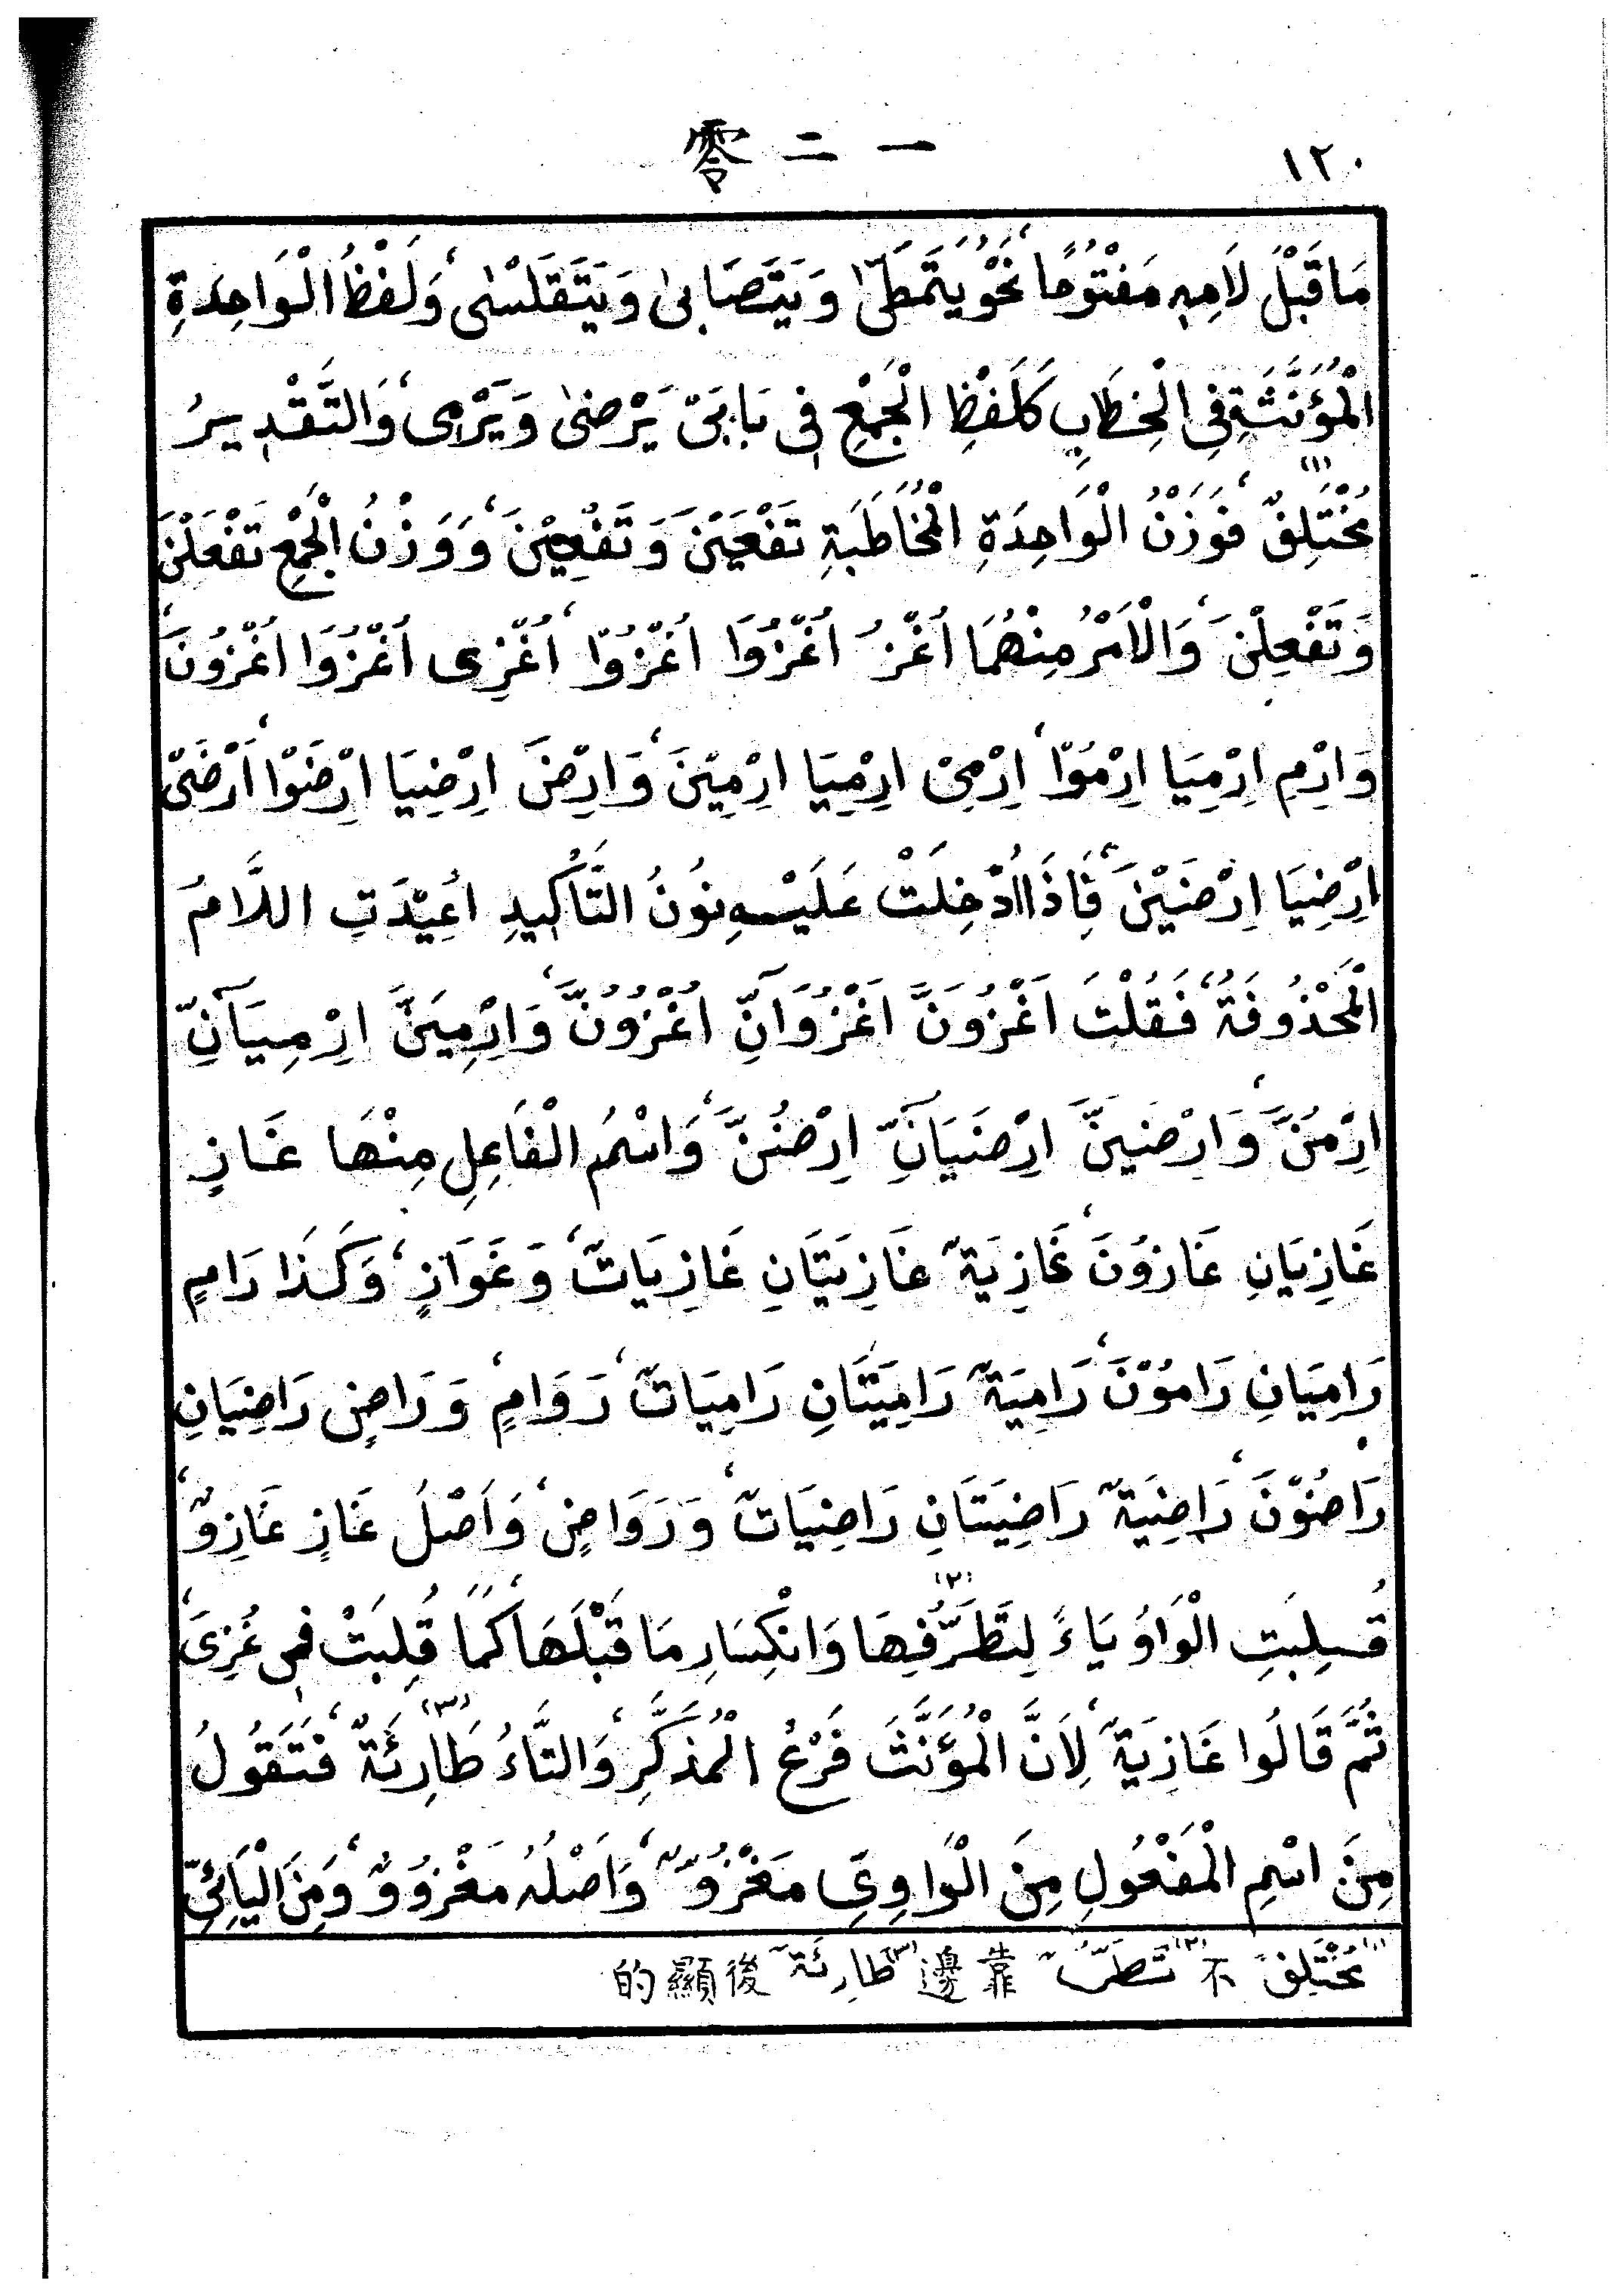 ١٢٠
一二零
مَا قَبْلَ لَامِهِ مَفْتُوحًا نَحْوُ يَتَمَطَّىٰ وَيَتَصَابىٰ وَيَتَقَلَسْىٰ، وَلَفْظُ الْوَاحِدَةِ
الْمُؤَنَّثَةِ فِي الْخِطَابِ كَلَفْظِ الْجَمْعِ فِي بَابَيْ يَرْضىٰ وَيَرْمِى، وَالتَّقْدِيرُ
مُخْتَلِفٌ (١)، فَوَزْنُ الْوَاحِدَةِ الْمُخَاطَبَةِ تَفْعَيْنَ وَتَفْعِيْنَ، وَوَزْنُ الْجَمْعِ تَفْعَلْنَ
وَتَفْعِلْنَ، وَالْاَمْرُ مِنْهُمَا اُغْزُ اُغْزُوَا اُغْزُوْا، اُغْزِى اُغْزُوَا اُغْزُونَ،
وَارْمِ اِرْمِيَا اِرْمُوْا، اِرْمِىْ اِرْمِيَا اِرْمِيْنَ، وَارْضَ اِرْضِيَا اِرْضَوْا، اَرْضَىْ
اِرْضِيَا اِرْضَيْنَ، فَاِذَا اُدْخِلَتْ عَلَيْهِ نُونُ التَّأْكِيدِ اُعِيْدَتِ اللَّامُ
الْمَحْذُوفَةُ، فَقُلْتَ اَغْزُوَنَّ اَغْزُوَآنِّ اُغْزُوُنَّ، وَارْمِيَنَّ اِرْمِيَآنِّ
اِرْمُنَّ، وَارْضَيَنَّ اِرْضَيَآنِّ اِرْضُنَّ، وَاسْمُ الْفَاعِلِ مِنْهَا غَازٍ
غَازِيَانِ غَازُونَ، غَازِيَةٌ غَازِيَتَانِ غَازِيَاتٌ، وَغَوَازٍ، وَكَذَا رَامٍ
رَامِيَانِ رَامُوْنَ، رَامِيَةٌ رَامِيَتَانِ رَامِيَاتٌ، رَوَامٍ، وَرَاضٍ رَاضِيَانِ
رَاضُوْنَ، رَاضِيَةٌ رَاضِيَتَانِ رَاضِيَاتٌ، وَرَوَاضٍ، وَاَصْلُ غَازٍ غَازِوٌ،
قُلِبَتِ الْوَاوُ يَاءً لِتَطَرُّفِهَا (٢) وَانْكِسَارِ مَا قَبْلَهَا، كَمَا قُلِبَتْ فِى غُزِىَ،
ثُمَّ قَالُوا غَازِيَةٌ، لِاَنَّ الْمُؤَنَّثَ فَرْعُ الْمُذَكَّرِ، وَالتَّاءُ طَارِئَةٌ (٣)، فَتَقُولُ
مِنَ اسْمِ الْمَفْعُولِ مِنَ الْوَاوِيِّ مَغْزُوٌّ، وَاَصْلُهُ مَغْزُووٌ، وَمِنَ الْيَائِيِّ
(١) مُخْتَلِفٌ 不 (٢) تَطَرُّفٌ 靠邊 (٣) طَارِئَةٌ 後顯的